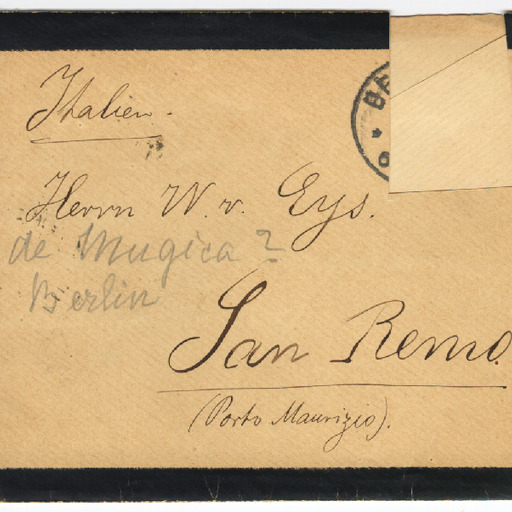 Italien.
Herrn W. v. Eys.
de Mugica?
Berlin
San Remo
(Porto Maurizio).